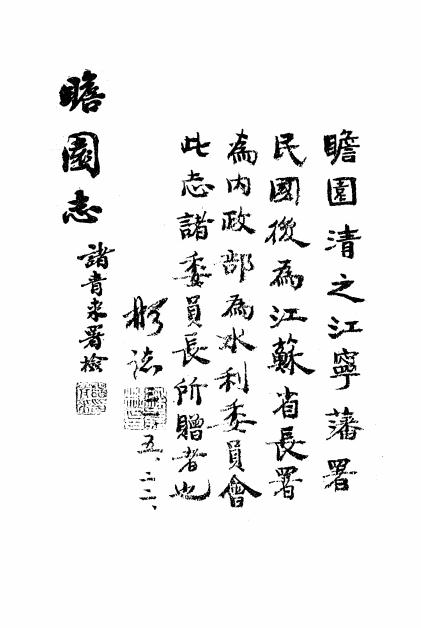 瞻園清之江寧藩署
民國後為江蘇省長署
為內政部為水利委員會
此志諸委員長所贈者也
誌
五、二二、
瞻園志
諸青來署檢